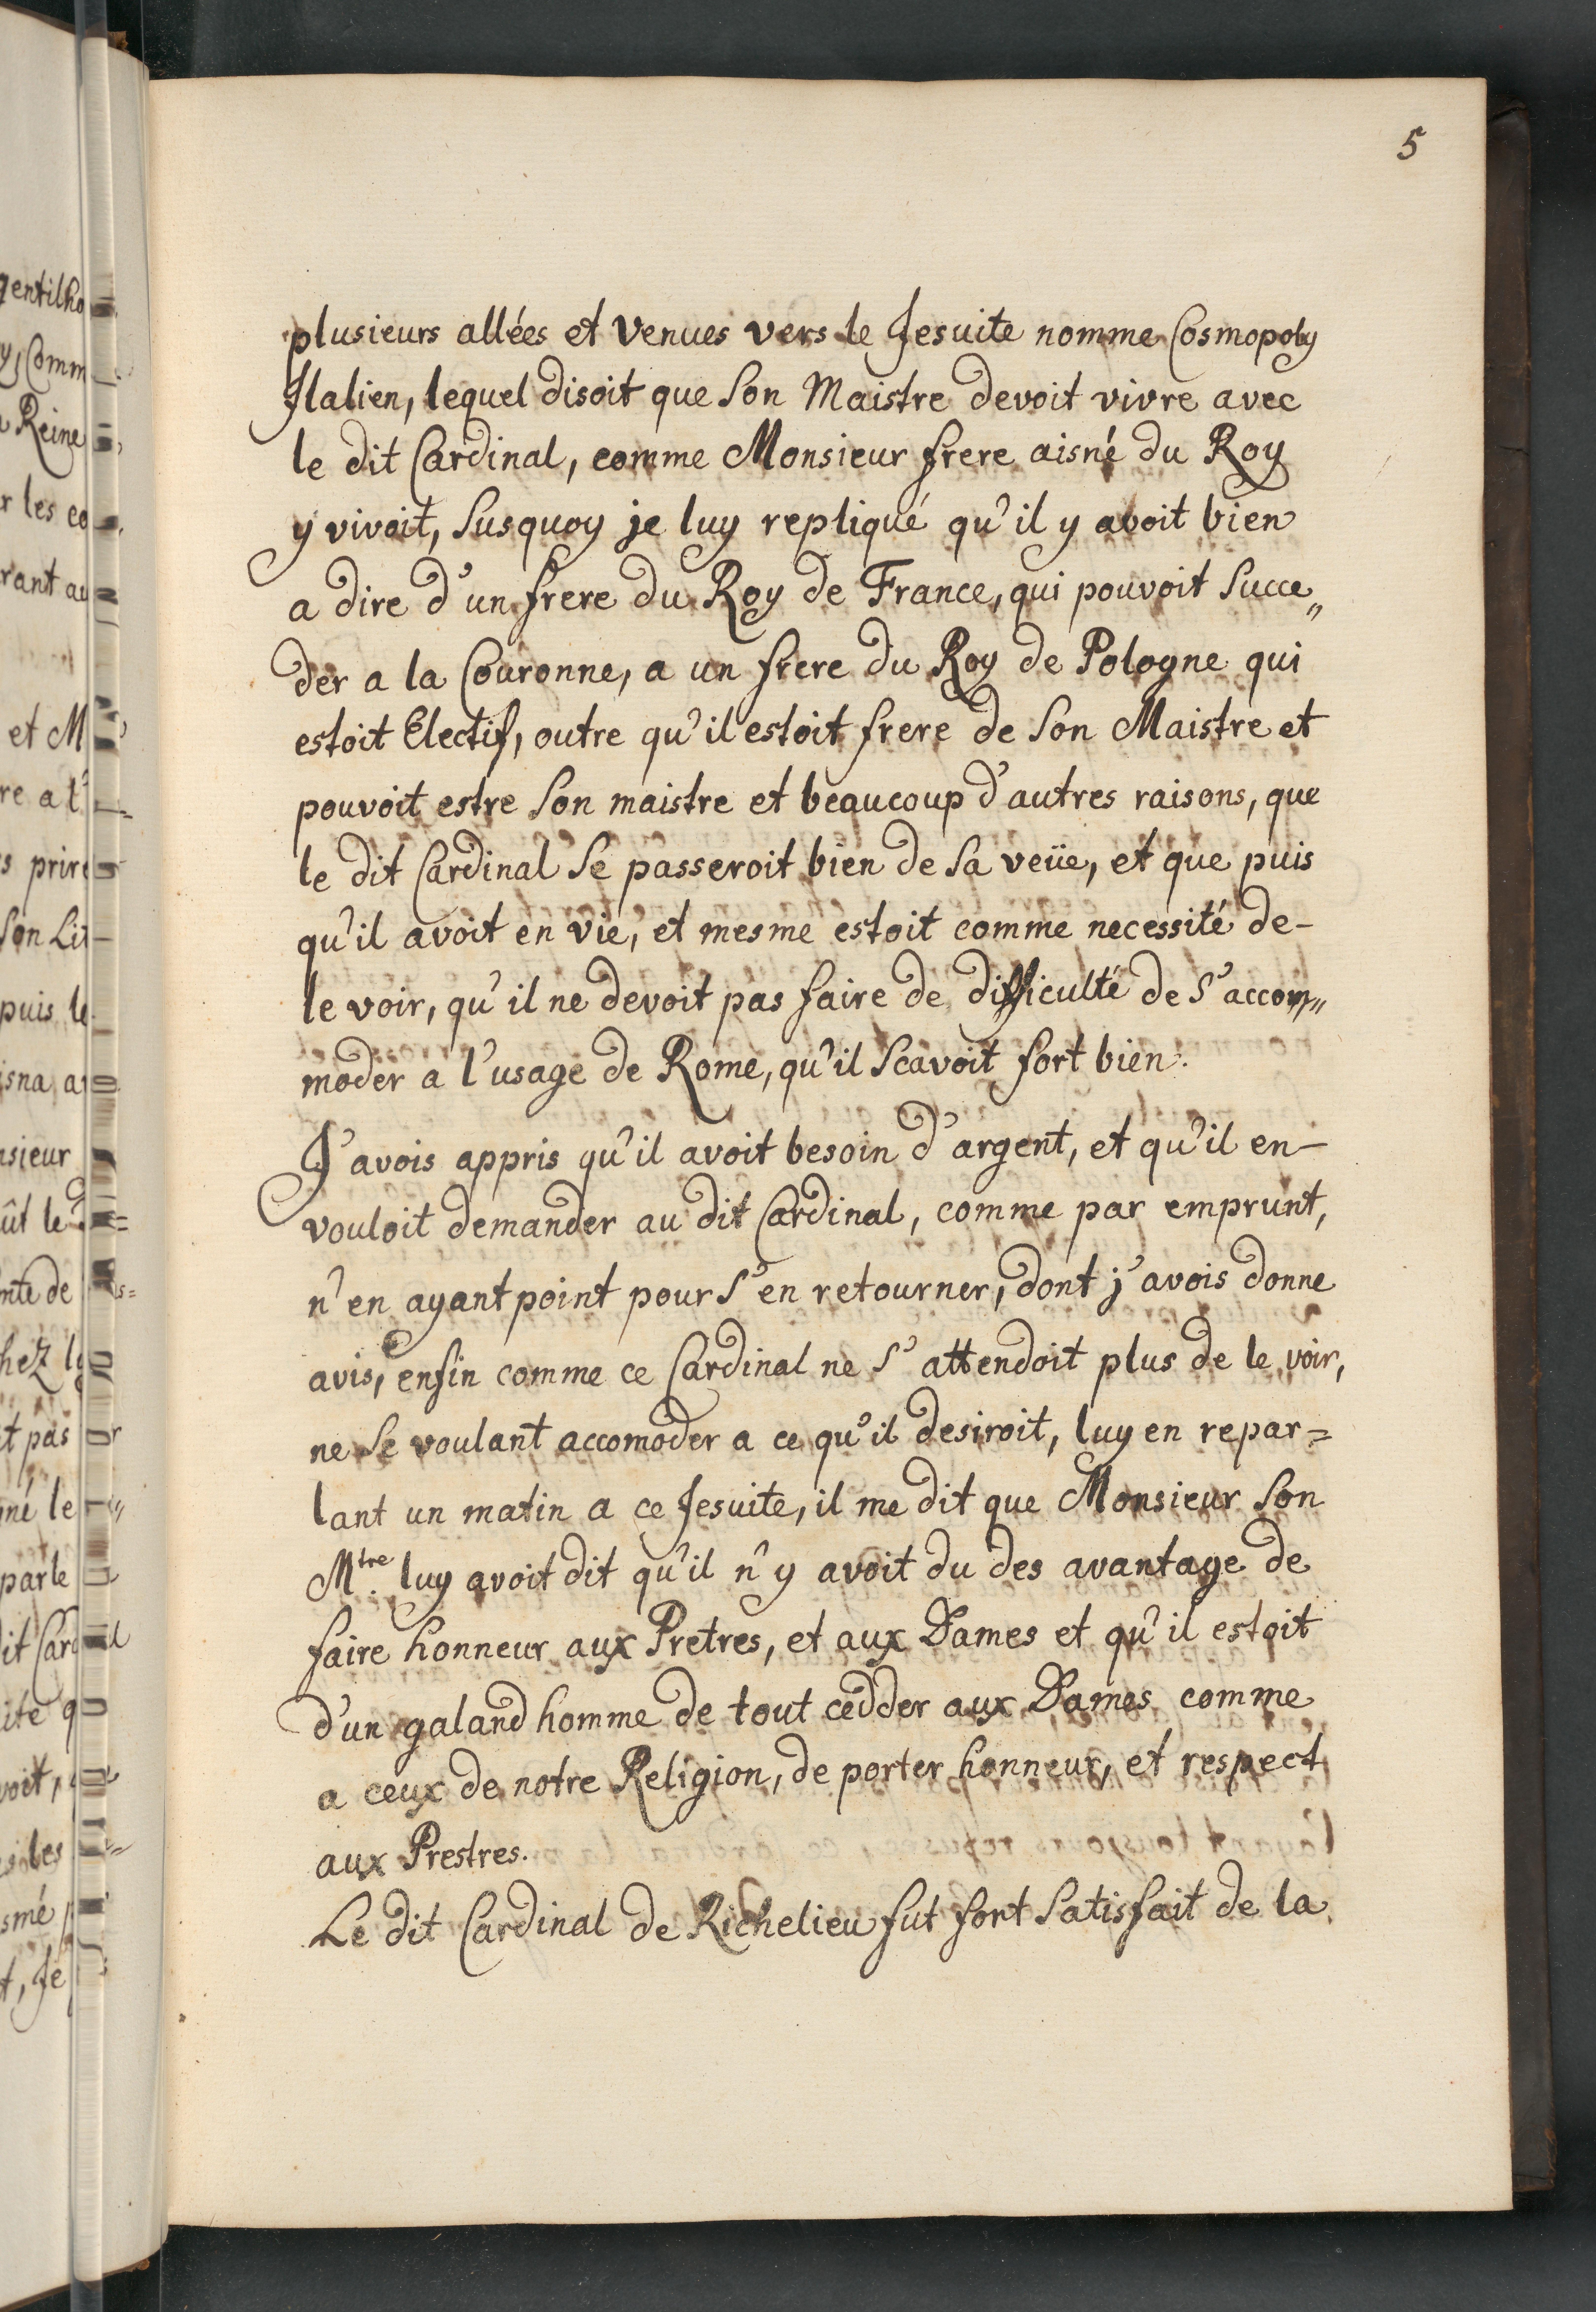 5
plusieurs allées et venues vers le Jesuite nomme Cosmopoly
Jtalien, lequel disoit que son Maistre devoit vivre avec
le dit Cardinal, comme Monsieur frere aisné du Roy
y vivoit, susquoy je luy repliqué qu'il y avoit bien
a dire d'un frere du Roy de France, qui pouvoit succe„
der a la Couronne, a un frere du Roy de Pologne qui
estoit Electif, outre qu'il estoit frere de son Maistre et
pouvoit estre son maistre et beaucoup d'autres raisons, que
le dit Cardinal se passeroit bien de sa veüe, et que puis
qu'il avoit en vie, et mesme estoit comme necessité de-
le voir, qu'il ne devoit pas faire de difficulté de s'accom„
moder a l'usage de Rome, qu'il scavoit fort bien.
J'avois appris qu'il avoit besoin d'argent, et qu'il en-
vouloit demander au dit Cardinal, comme par emprunt,
n'en ayant point pour s'en retourner, dont j'avois donne
avis, enfin comme ce Cardinal ne s'attendoit plus de le voir,
ne se voulant accomoder a ce qu'il desiroit, luy en repar=
lant un matin a ce Jesuite, il me dit que Monsieur son
Mtre luy avoit dit qu'il n'y avoit du des avantage de
faire honneur aux Pretres, et aux Dames et qu'il estoit
d'un galand homme de tout cedder aux Dames comme
a ceux de notre Religion, de porter honneur, et respect
aux Prestres.
Le dit Cardinal de Richelieu fut fort satisfait de la
gentilho
Reine
r les co
rant au
et M
re a l'
s prire
son Lit
puis le
nsieur
nte de
chez
t pas
gné le
parle
it Card
ite q
voit,
les